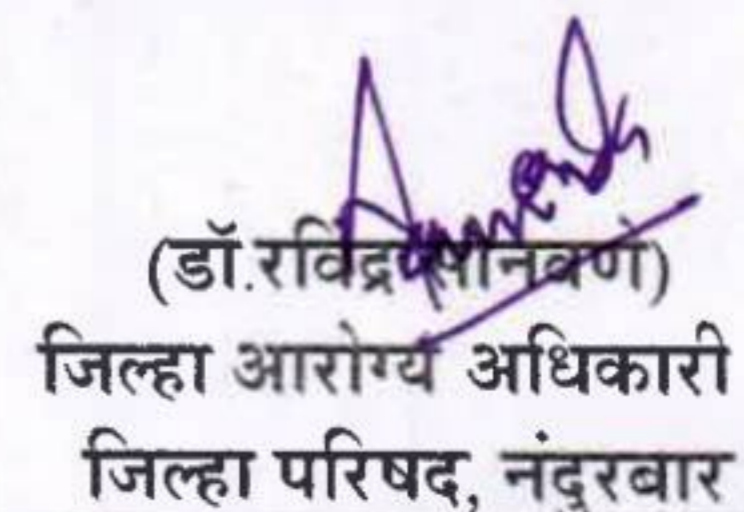 (डॉ.रविंद्र सोनवणे)
जिल्हा आरोग्य अधिकारी
जिल्हा परिषद, नंदुरबार